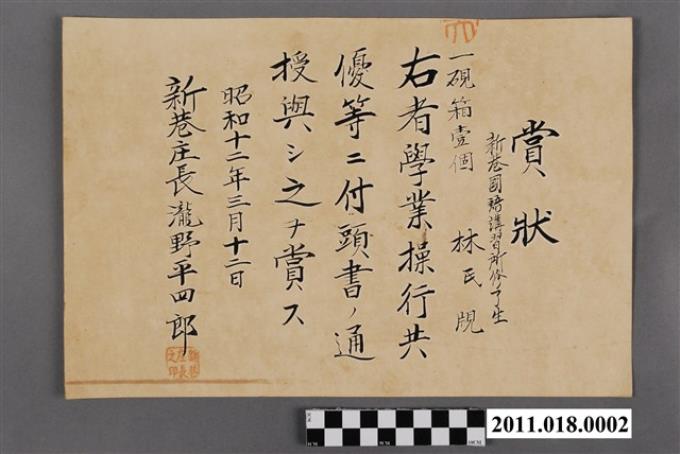 賞狀
新巷國語講習所修了生
林氏
一硯箱壹個
右者學業操行共
優等ニ付頭書ノ通
授與シ之ヲ賞ス
昭和十二年三月十二日
新巷庄長瀧野平四郎
2011.018.0002